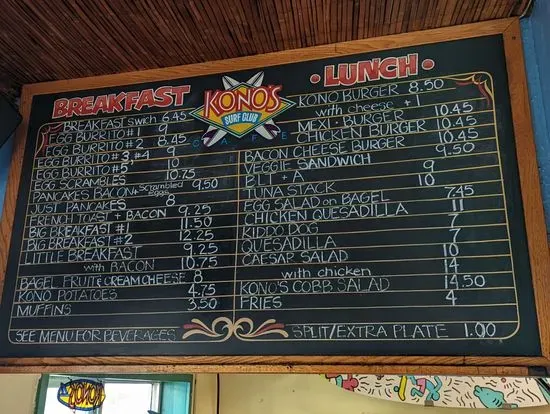 BREAKFAST
BREAKFAST SWICH 6.45
EGG BURRITO #1 9
EGG BURRITO #2 8.45
EGG BURRITO #3,#4 9
EGG BURRITO #5 10
EGG SCRAMBLES 10.75
PANCAKES BACON + Scrambled eggs 9.50
JUST PANCAKES 8
FRENCH TOAST + BACON 9.25
BIG BREAKFAST #1 11.50
BIG BREAKFAST #2 12.25
LITTLE BREAKFAST 9.25
with BACON 10.75
BAGEL FRUIT & CREAM CHEESE 8
KONO POTATOES 4.75
MUFFINS 3.50
SEE MENU FOR BEVERAGES
KONO'S
SURF CLUB
CAFE
LUNCH
KONO BURGER 8.50
with cheese + 1
MEXI • BURGER 10.45
CHICKEN BURGER 10.45
BACON CHEESE BURGER 10.45
VEGGIE SANDWICH 9.50
BLT + A 9
TUNA STACK 10
EGG SALAD on BAGEL 7.45
CHICKEN QUESADILLA 11
KIDDO DOG 7
QUESADILLA 7
CAESAR SALAD 10
with chicken 14
KONO'S COBB SALAD 14.50
FRIES 4
SPLIT/EXTRA PLATE 1.00